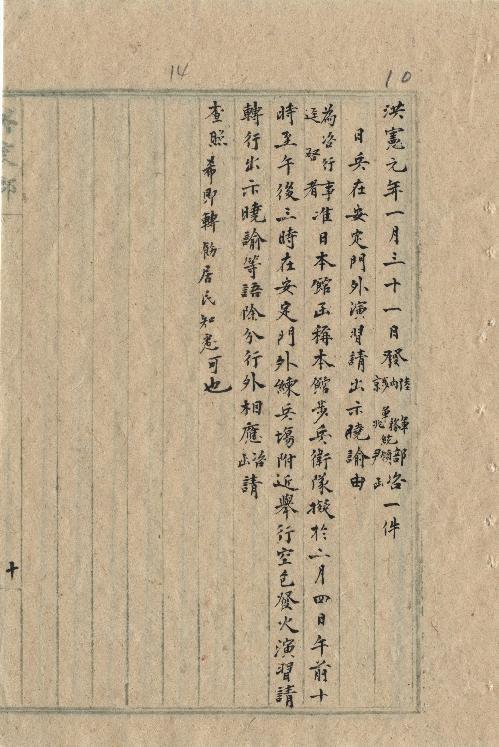 10
14
洪憲元年一月三十一日發陸軍部咨一件
內務
京兆尹函
日兵在安定門外演習請出示曉諭由
為咨行事准日本館函稱本館步兵衛隊擬於二月四日午前十
逕啓者
時至午後三時在安定門外練兵場附近舉行空包發火演習請
轉行出示曉諭等語除分行外相應咨請
函
查照希即轉飭居民知悉可也
十